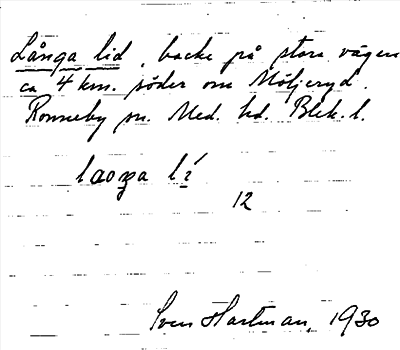 Långa lid, backe på stora vägen
ca 4 km. söder om Möljeryd.
Ronneby sn. Med. hd. Blek. l.
12
Sven Hartman, 1930